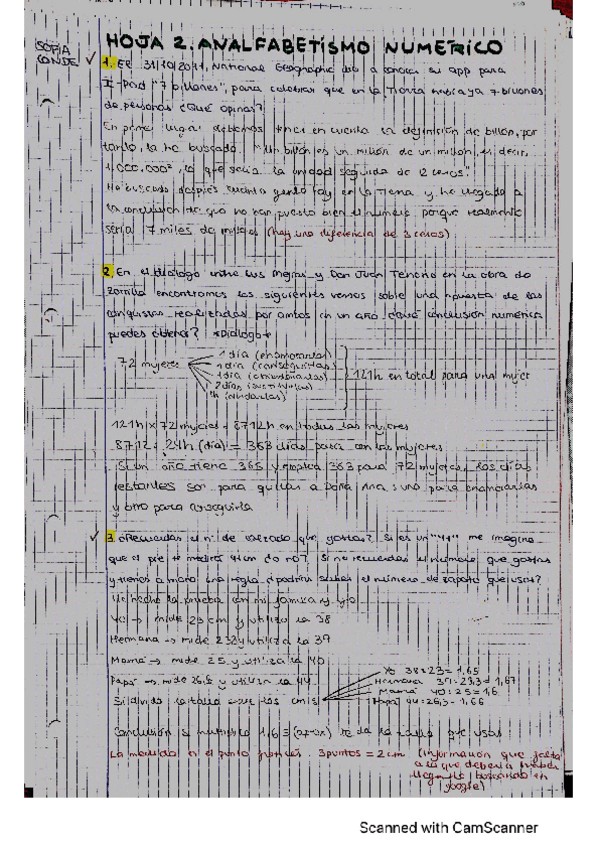 SOFIA
CONDE
HOJA 2. ANALFABETISMO NUMÉRICO
1. El 31/10/2011, National Geographic dió a conocer su app para
I-Pad "7 billones", para celebrar que en la Tierra había ya 7 billones
de personas ¿Qué opinas?
En primer lugar debemos tener en cuenta la definición de billón, por
tanto, la he buscado. "Un billón es un millón de un millón, es decir,
1.000.000², lo que sería la unidad seguida de 12 ceros".
He buscado después cuánta gente hay en la Tierra y he llegado a
la conclusión de que no han puesto bien el número, porque realmente
sería 7 miles de millones (hay una diferencia de 3 ceros)
2. En el diálogo entre Luis Mejías y Don Juan Tenorio en la obra de
Zorrilla encontramos los siguientes versos sobre una apuesta de las
conquistas realizadas por ambos en un año ¿Qué conclusión numérica
puedes obtener? *Diálogo*
72 mujeres
1 día (enamorarlas)
1 día (conseguirlas)
1 día (abandonarlas)
2 días (sustituirlas)
1h (olvidarlas)
121h en total para una mujer
121h x 72 mujeres = 8712h en todas las mujeres
8712 : 24h (día) = 363 días pasa con las mujeres
Si un año tiene 365 y emplea 363 para 72 mujeres, los días
restantes son para quitar a Doña Ana: uno para enamorarlas
y otro para conseguirla
3. ¿Recuerdas el nº de calzado que gastas? Si es un "41" me imagino
que el pie te medirá 41cm ¿o no? Si no recuerdas el número que gastas
y tienes a mano una regla ¿podrías saber el número de zapato que usas?
He hecho la prueba con mi familia y yo
Yo → mide 23 cm y utilizo la 38
Hermana → mide 23'3 y utiliza la 39
Mamá → mide 25 y utiliza la 40
Papá → mide 26.5 y utiliza la 44
Si divido la talla entre los cms
Yo 38:23 = 1,65
Hermana 39:23,3 = 1,67
Mamá 40:25 = 1,6
Papá 44:26,5 = 1,66
Conclusión si multiplico 1,65 (aprox) te da la talla que usas
La medida es el punto francés 3 puntos = 2 cm (información que falta
a la que debería haber
llegado buscando en
google)
Scanned with CamScanner